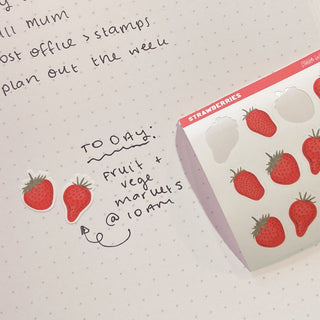 ill mum
ost office > stamps
plan out the week
TODAY.
fruit +
vege
markets
@ 10AM
STRAWBERRIES